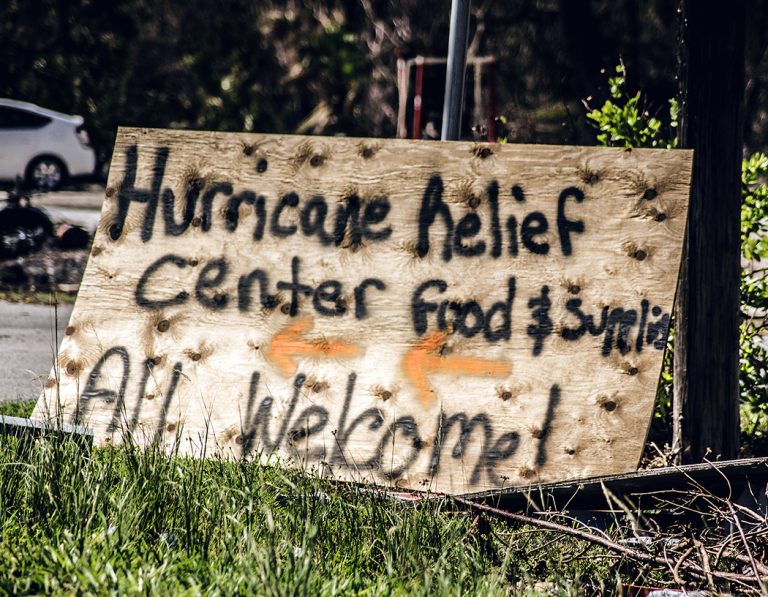 Hurricane Relief
Center Food & Supplies
All Welcome!